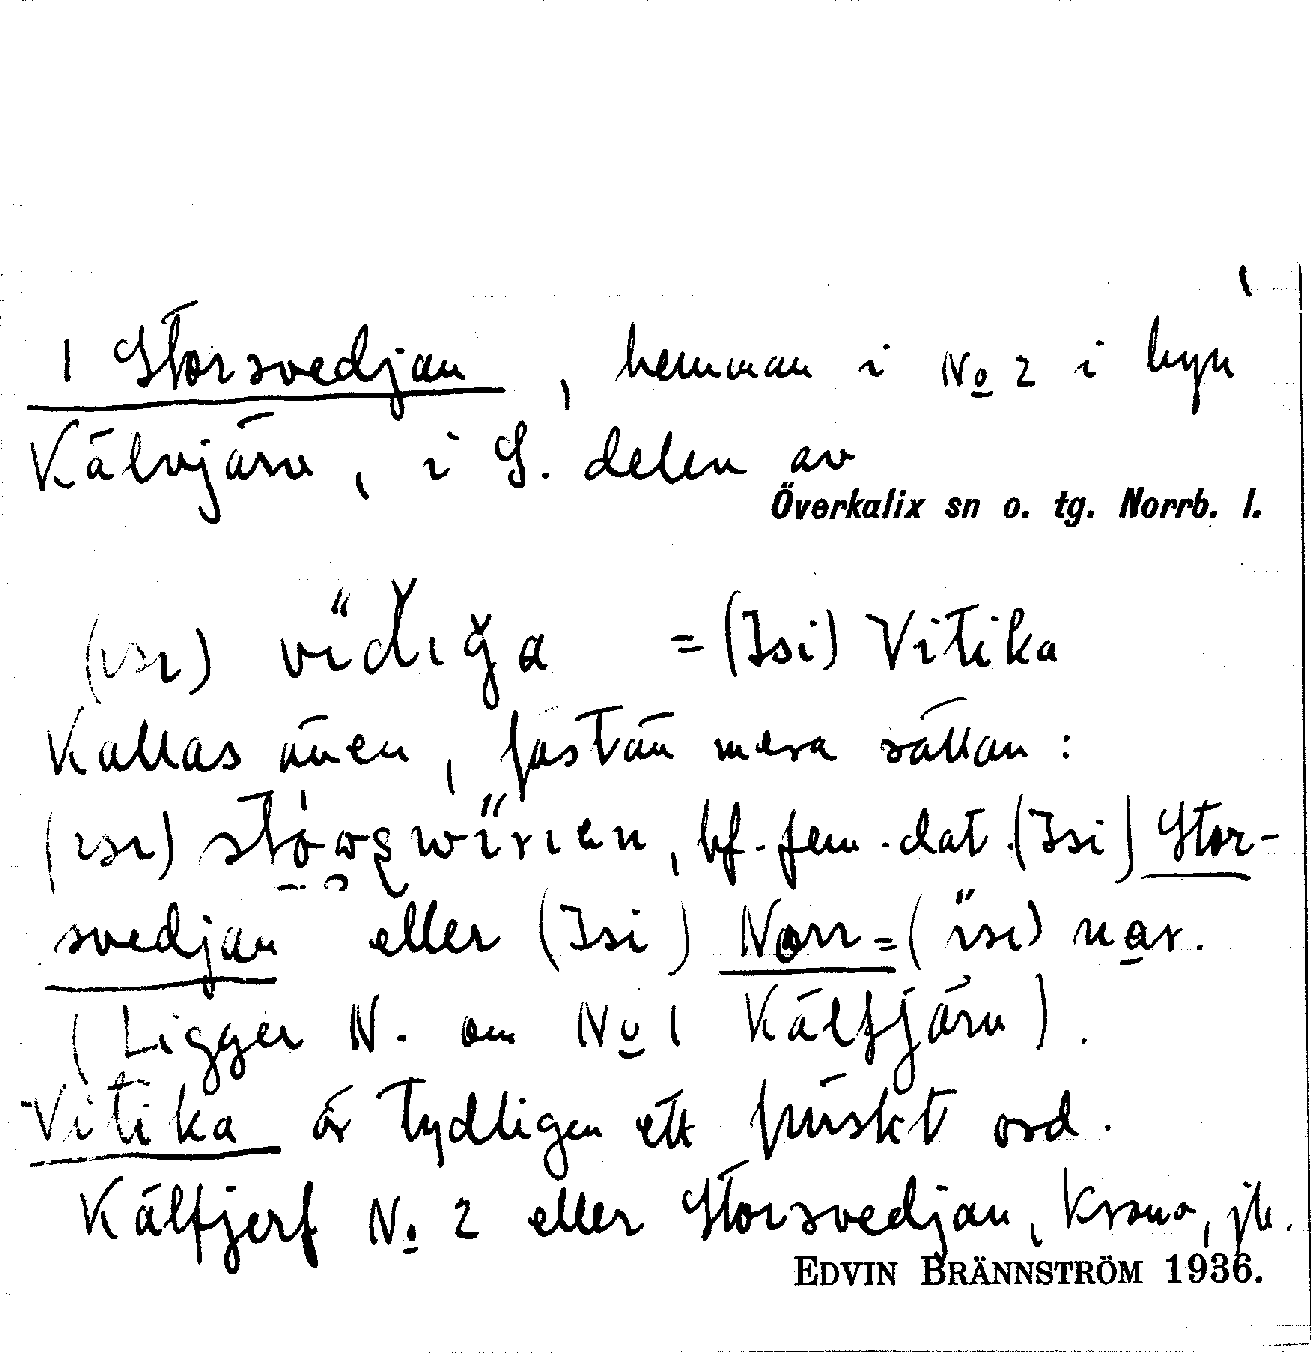 1 Storsvedjan, hemman i No 2 i byn
Kälvjärv, i S. delen av
Överkalix sn o. tg. Norrb. l.
(ısı) = (Isi) Vitika
Kallas även, fastän mera sällan:
(ısı) bf. fem. dat. (Isi) Stor-
svedjan eller (Isi) Norr= (ısı) nar.
(Ligger N. om No 1 Kälfjärv).
Vitika är tydligen ett finskt ord.
Kälfjerf No 2 eller Storsvedjan, krono, jb.
EDVIN BRÄNNSTRÖM 1936.